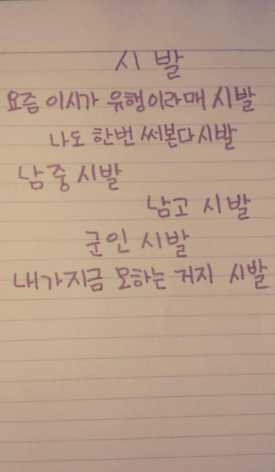 시 발
요즘 이시가 유행이라매 시발
나도 한번 써본다 시발
남중 시발
남고 시발
군인 시발
내가지금 모하는 거지 시발